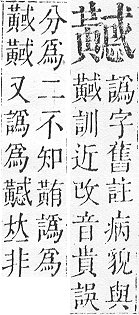 譌字舊註病貌與
訓近改音貴誤
分爲二不知䵋譌爲
又譌爲𠀤非